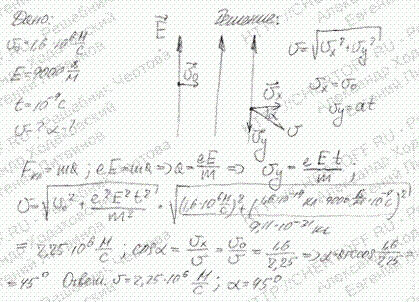 Дано: Решение:
υ₀=1,6·10⁶ м/с
E=9000 В/м
t=10⁻⁹ c
υ-? α-?
E⃗
υ⃗₀
υ⃗ₓ
α
υ⃗y
υ
υ=√(υₓ²+υy²)
υₓ=υ₀
υy=at
Fкл=ma; eE=ma ⇒ a=eE/m ⇒ υy=eEt/m;
υ=√(υ₀²+e²E²t²/m²)=√((1,6·10⁶ м/с)²+(1,6·10⁻¹⁹ Кл·9000 В/м·10⁻⁹ c/9,11·10⁻³¹ кг)²)
=2,25·10⁶ м/с; cosα=υₓ/υ=υ₀/υ=1,6/2,25 ⇒ α=arccos 1,6/2,25=
=45° Ответ: υ=2,25·10⁶ м/с; α=45°